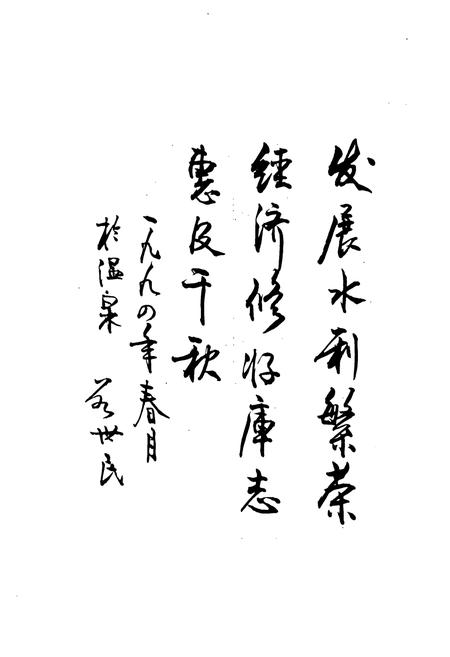 发展水利繁荣
經济修好庫志
惠及千秋
一九九四年春月
於温泉
世民